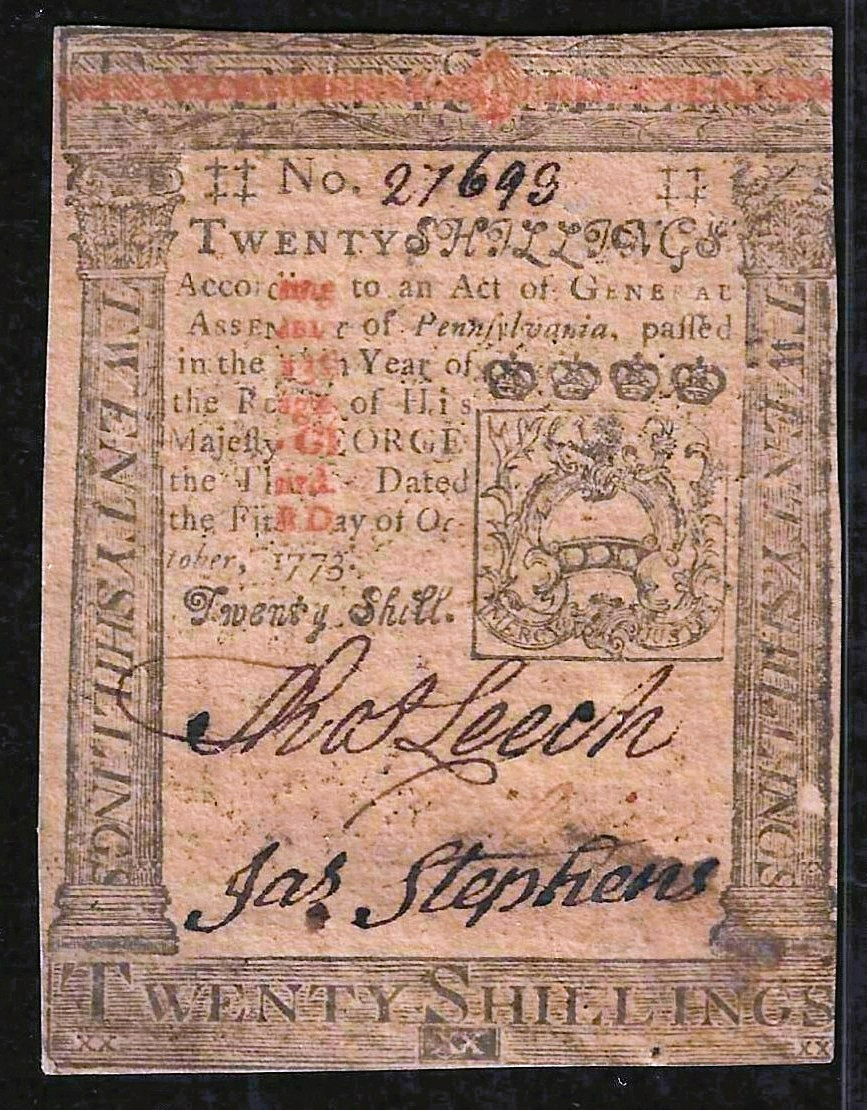 TWENTY SHILLINGS
‡‡ No. 27693 ‡‡
TWENTY SHILLINGS
According to an Act of GENERAL
ASSEMBLY of Pennſylvania, paſſed
in the Year of
the Reign of His
Majeſty GEORGE
the Third. Dated
the Firſt Day of Oc-
tober, 1773.
Twenty Shill.
MERCY JUSTICE
Thos Leech
Jas Stephens
TWENTY SHILLINGS
TWENTY SHILLINGS
TWENTY SHILLINGS
XX XX XX